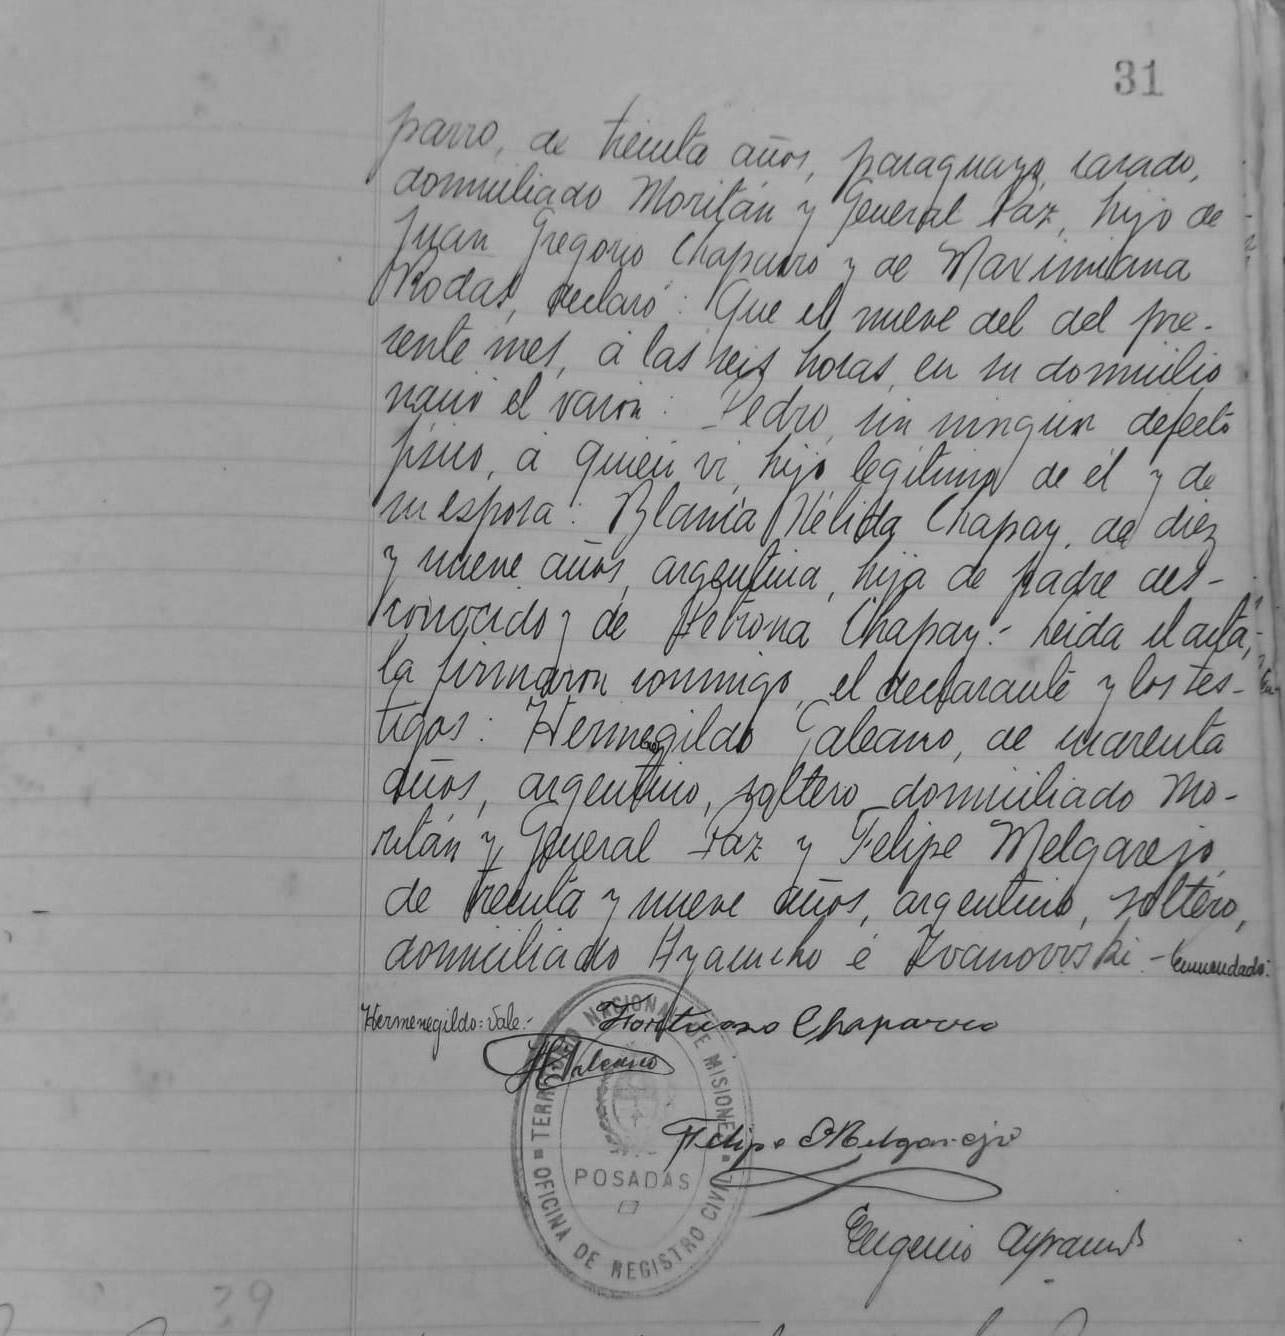 31
parro, de treinta años, paraguayo, casado,
domiciliado Moritán y General Paz, hijo de
Juan Gregorio Chaparro y de Maximiana
Rodas, declaró: Que el nueve del del pre-
sente mes, á las seis horas, en su domicilio
nació el varón: Pedro, sin ningun defecto
físico, á quien vi, hijo legítimo de él y de
su esposa: Blanca Nélida Chapay, de diez
y nueve años, argentina, hija de padre des-
conocido y de Petrona Chapay.- Leida el acta,
la firmaron conmigo, el declarante y los tes-
tigos: Hermegildo Galeano, de cuarenta
años, argentino, soltero, domiciliado Mo-
ritán y General Paz y Felipe Melgarejo,
de treinta y nueve años, argentino, soltero,
domiciliado Ayacucho é Ivanovski.- Enmendado:
Hermenegildo: Vale.-
Fortunoso Chaparro
H Galeano
Felipe Melgarejo
Eugenio
TERRITORIO NACIONAL DE MISIONES
POSADAS
OFICINA DE REGISTRO CIVIL
29